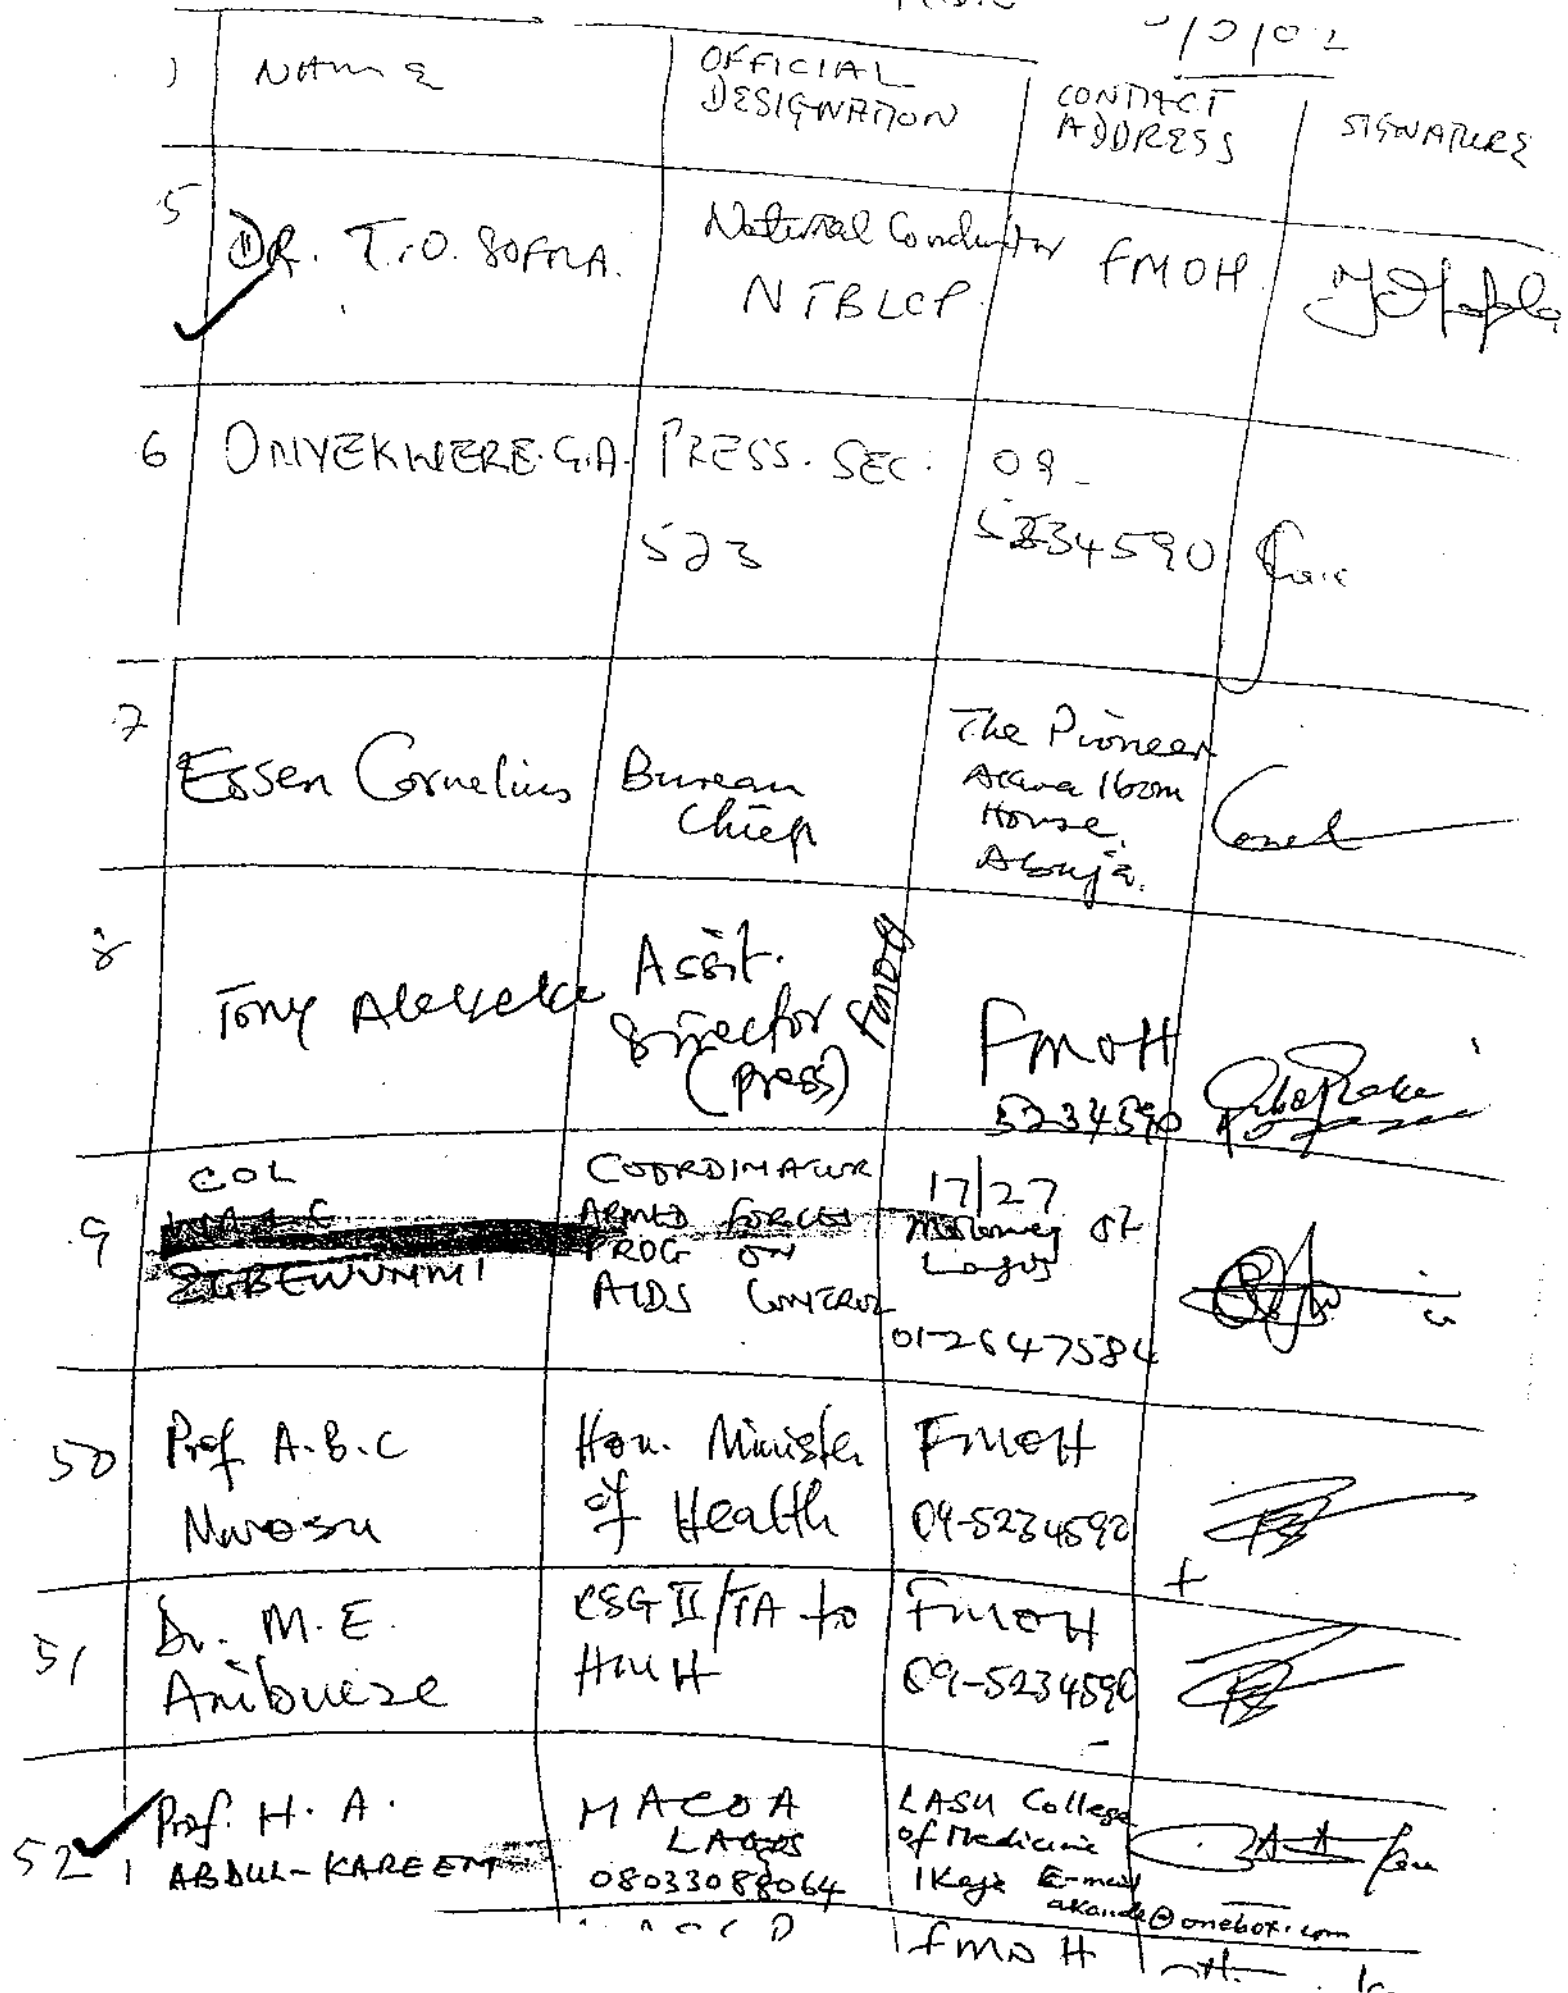 NAME
OFFICIAL
DESIGNATION
CONTACT
ADDRESS
SIGNATURE
5
DR. T.O. SOFOLA.
National Coordinator
NTBLCP.
FMOH.
6
ONYEKWERE. G.A.
PRESS. SEC.
523
09-
5234590
7
Essen Cornelius
Bureau
Chief
The Pioneer
Akwa Ibom
House,
Abuja.
8
Tony
Assit.
Director
(Press)
FMOH
FMOH
5234590
9
COL
EGBEWUNMI
COORDINATOR
ARMED FORCES
PROG ON
AIDS CONTROL
17/27
St
Lagos
01-2647584
50
Prof A.B.C
Nwosu
Hon. Minister
of Health
FMOH
09-5234590
51
Dr. M.E.
Anibueze
/TA to
HMH
FMOH
09-5234590
52
Prof. H. A.
ABDUL-KAREEM
MACOA
LAGOS
08033088064
LASU College
of Medicine
Ikeja E-mail
akande@onebox.com
FMOH